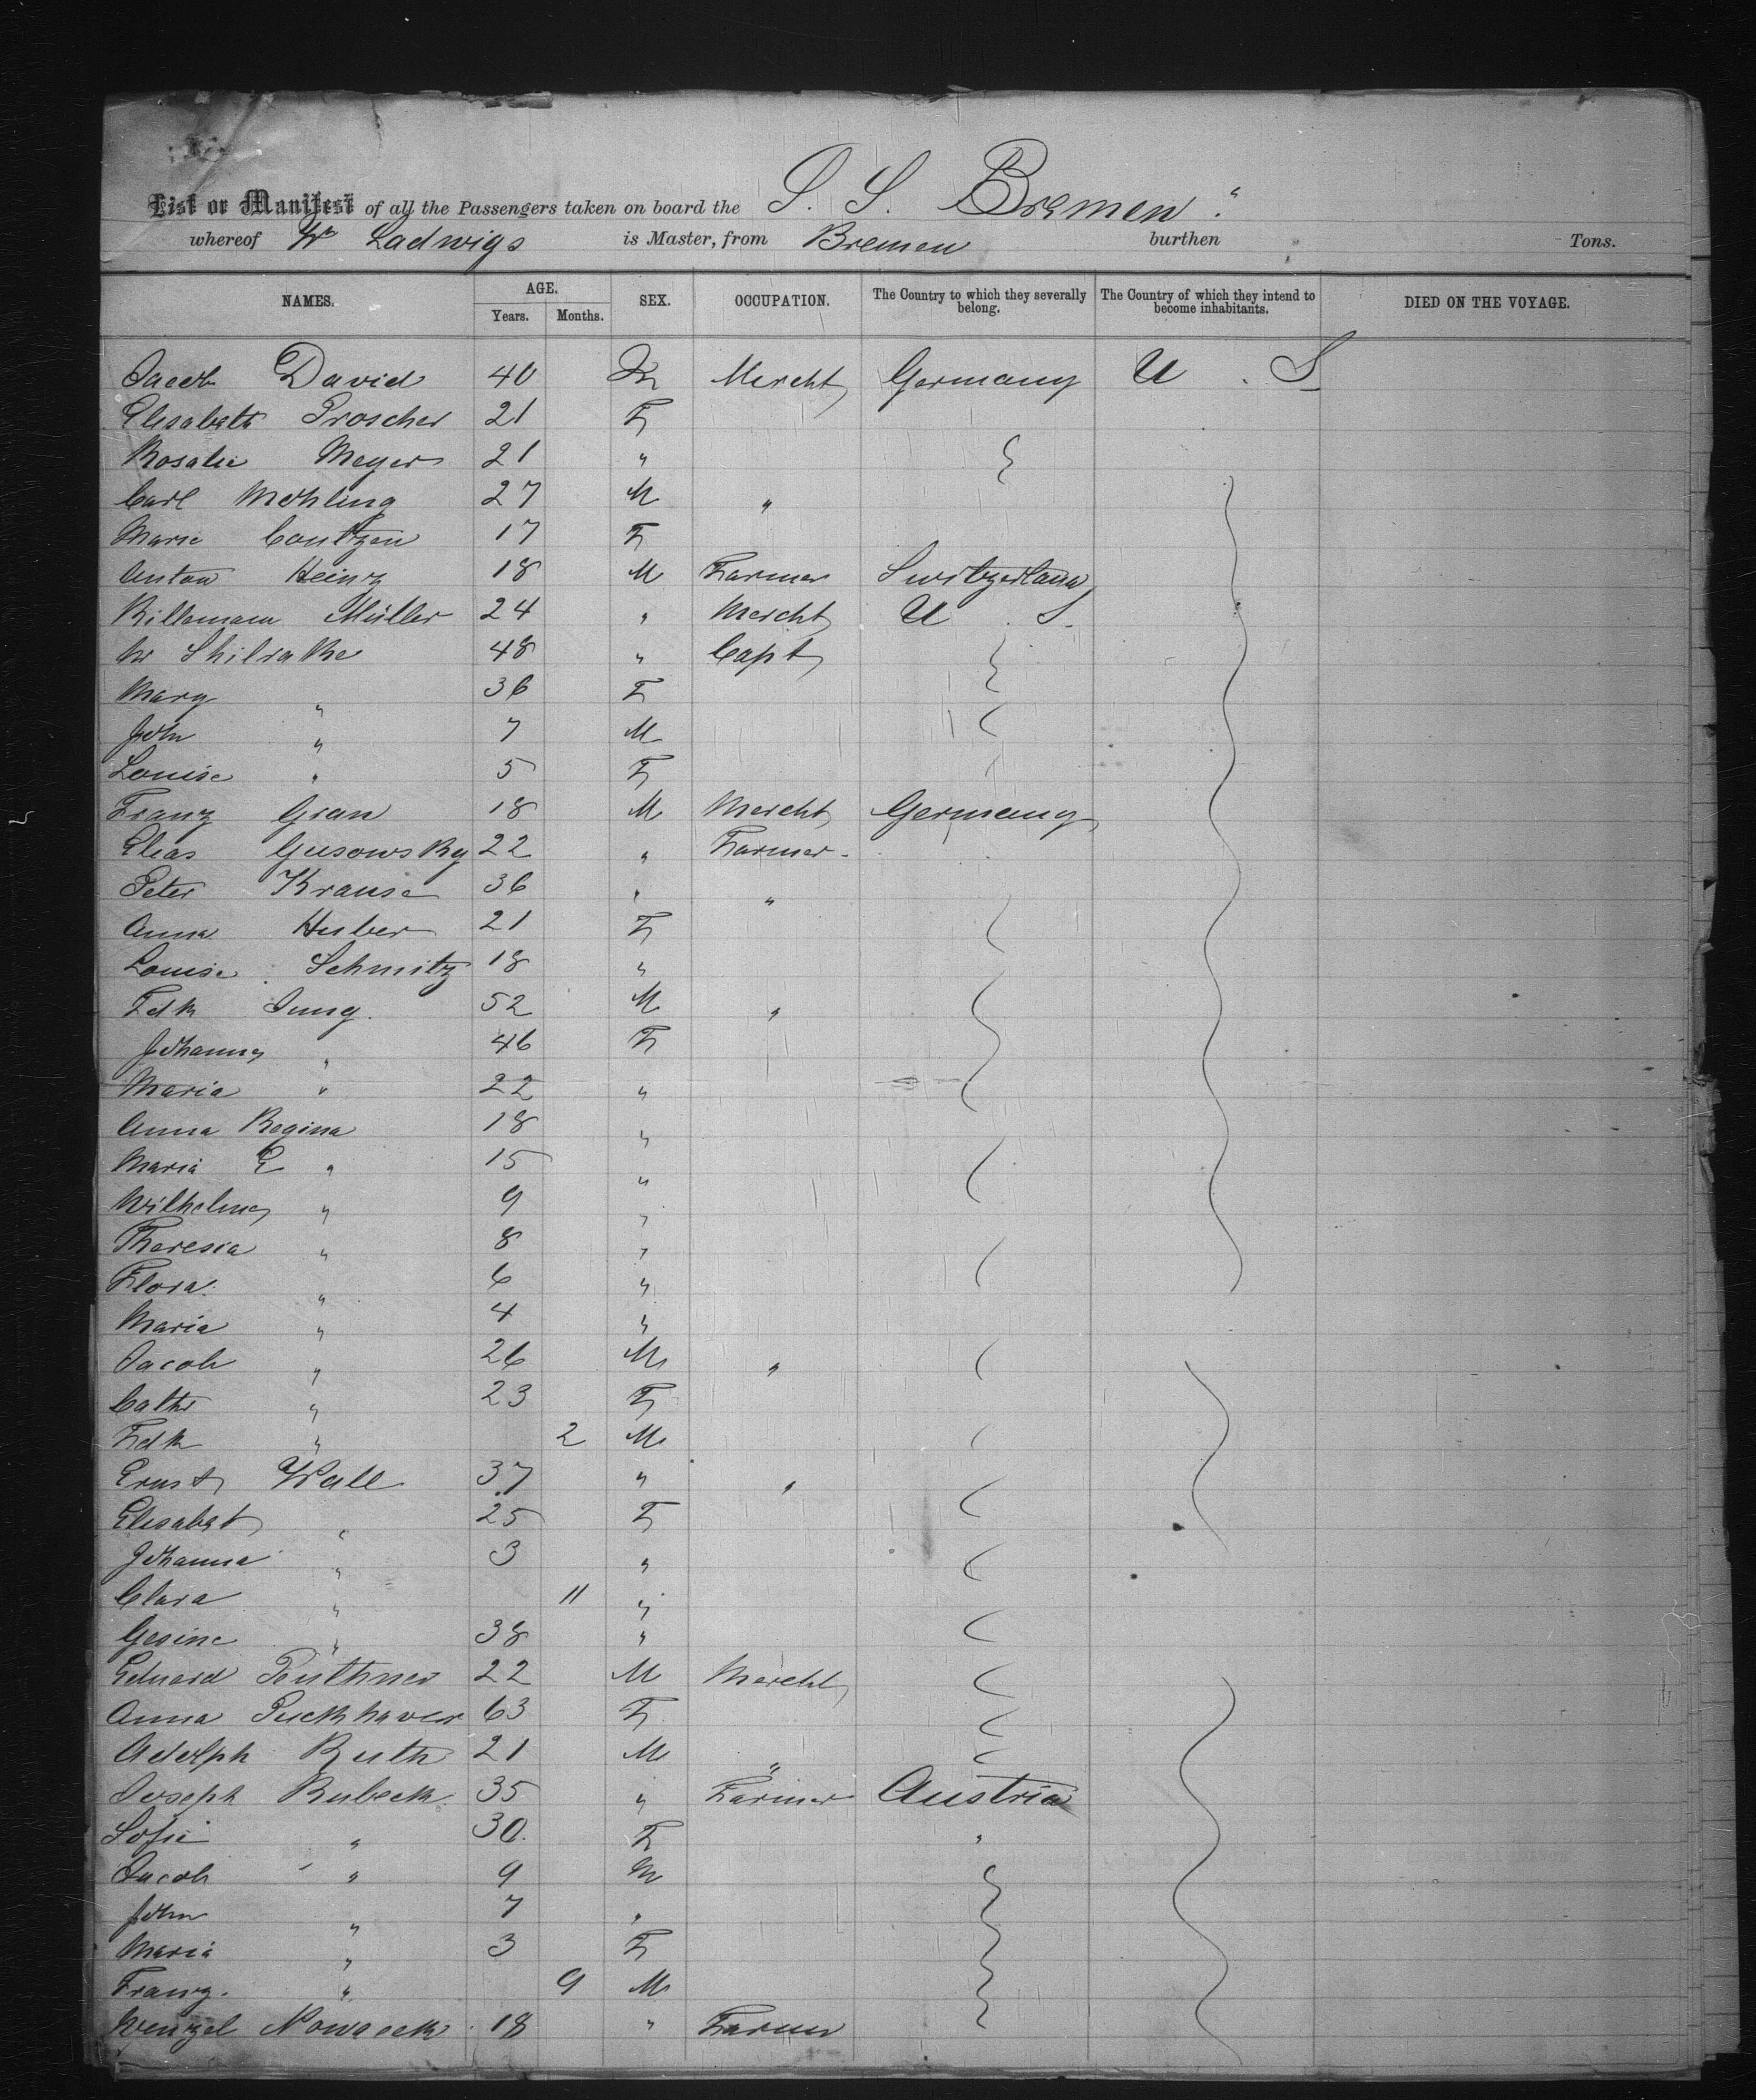 List or Manifest of all the Passengers taken on board the S. S. Bremen "
whereof Wm Ladwigs is Master, from Bremen burthen Tons.
NAMES. AGE. Years. Months. SEX. OCCUPATION. The Country to which they severally belong. The Country of which they intend to become inhabitants. DIED ON THE VOYAGE.
Jacob David 40 M Mercht Germany U. S
Elisabeth Proscher 21 F
Rosalie Meyer 21 "
Carl Mohling 27 M "
Marie Contzen 17 F
Anton Heinz 18 M Farmer Switzerland
Müller 24 " Mercht U. S.
48 " Capt
Mary " 36 F
John " 7 M
Louise " 5 F
Franz Gran 18 M Mercht Germany
Elias Gusowsky 22 " Farmer
Peter Krause 36 " "
Anna Huber 21 F
Louise Schmitz 18 "
Fdk Jung 52 M "
Johanna " 46 F
Maria " 22 "
Anna Regina 18 "
Maria E " 15 "
Wilhelma " 9 "
Theresia " 8 "
Flora " 6 "
Maria " 4 "
Jacob " 26 M "
Cathe " 23 F
Fdk " 2 M
Ernst Wall 37 " "
Elisabet " 25 F
Johanna " 3 "
Clara " 11 "
Gesine " 38 "
Eduard Peuthner 22 M Mercht
Anna Puckhaver 63 F
Adolph Ruth 21 M "
Joseph Rubeck 35 " Farmer Austria
Sofie " 30 F "
Jacob " 9 M
John " 7 "
Maria " 3 F
Franz " 9 M
Wenzel Nowacek 18 " Farmer